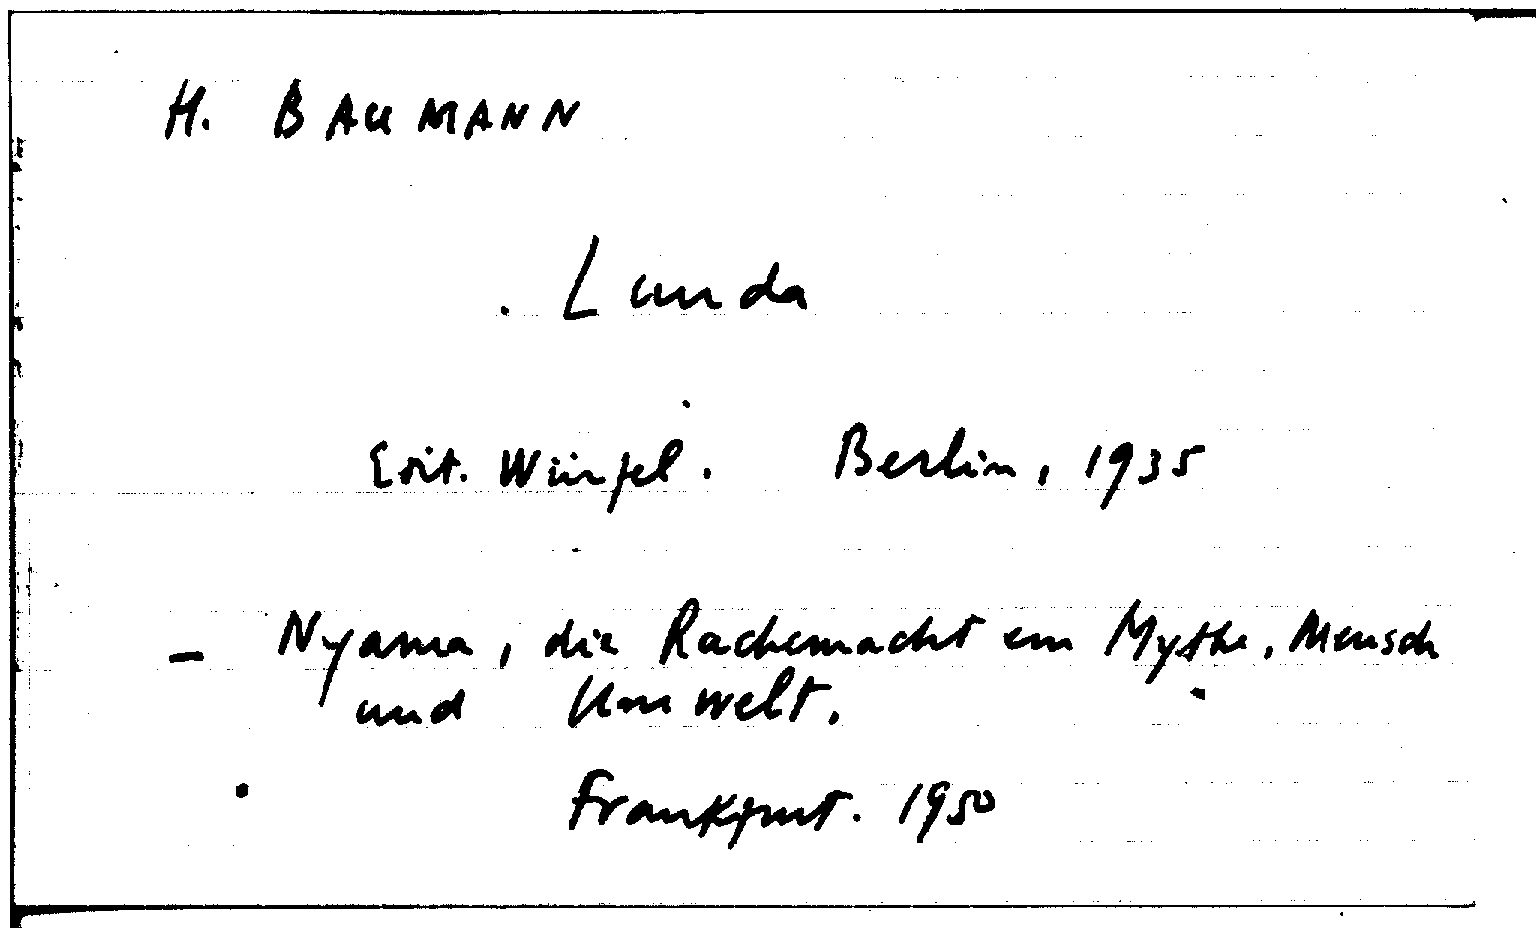 H. BAUMANN
Lunda
Edit. Würfel. Berlin, 1935
- Nyama, die Rachemacht em Mythe, Mensch
und Umwelt.
Frankfurt. 1950